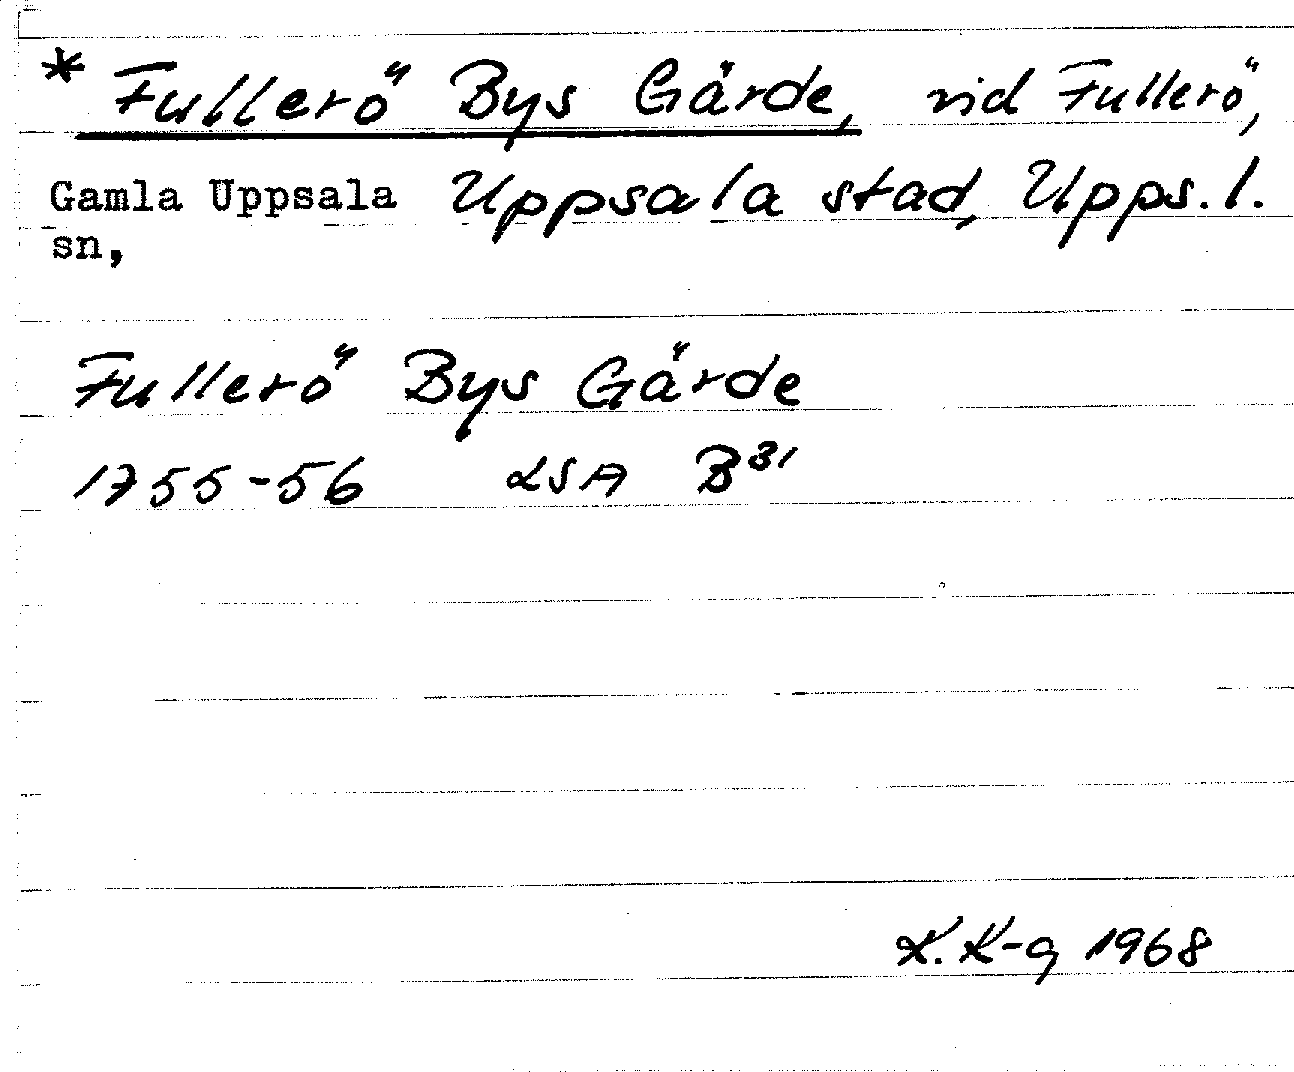 * Fullerö Bys Gärde, vid Fullerö,
Gamla Uppsala Uppsala stad, Upps. l.
sn,
Fullerö Bys Gärde
1755-56 LSA B31
K. K-g 1968